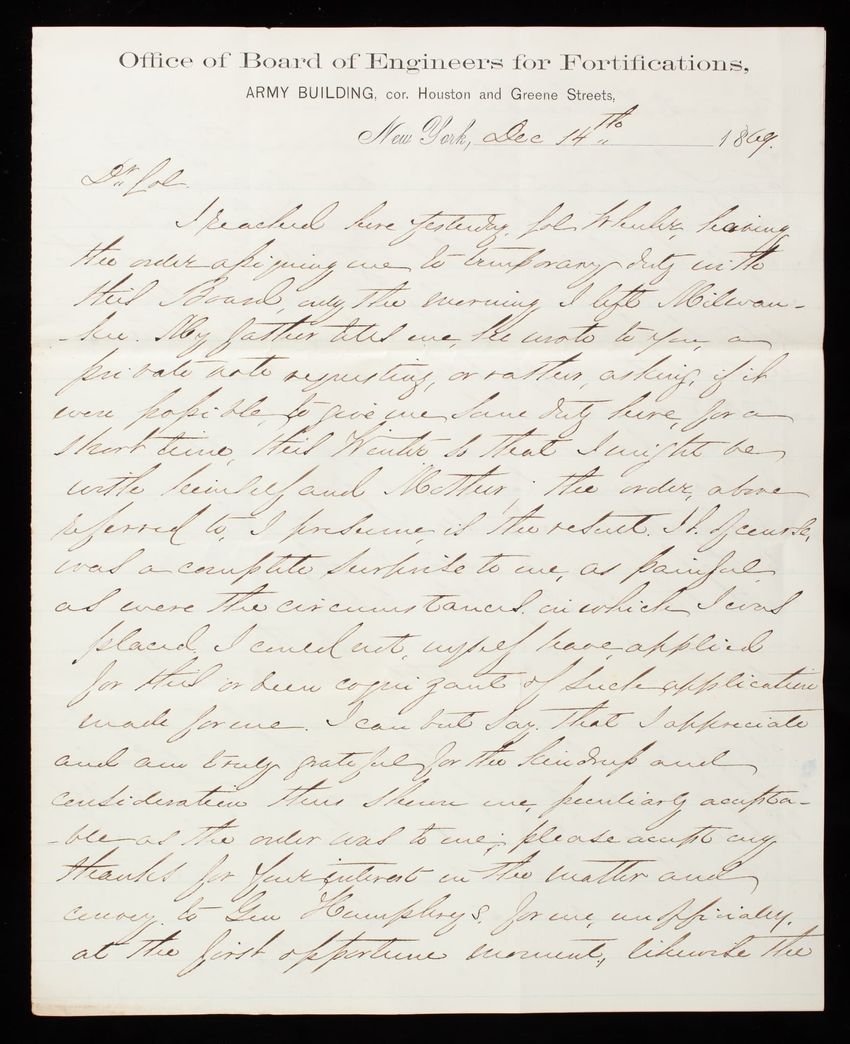 Office of Board of Engineers for Fortifications,
ARMY BUILDING, cor. Houston and Greene Streets,
New York, Dec 14th 1869.
Dr Col.
I reached here yesterday, Col Wheeler, having
the order assigning me to temporary duty with
this Board, only the morning I left Milwau-
-kee. My father tells me, he wrote to you, a
private note requesting, or rather, asking, if it
were possible, to give me some duty here, for a
short time, this Winter so that I might be
with himself and Mother; the order, above
referred to, I presume, is the result. It, of course,
was a complete surprise to me, as painful
as were the circumstances in which I was
placed, I could not, myself have, applied
for this or been cognizant of such application
made for me. I can but say, that I appreciate
and am truly grateful for the kindness and
consideration thus shown me, peculiarly accepta-
-ble as the order was to me; please accept my
thanks for your interest in the matter and
convey to Gen Humphreys, for me, unofficially,
at the first opportune moment, likewise the